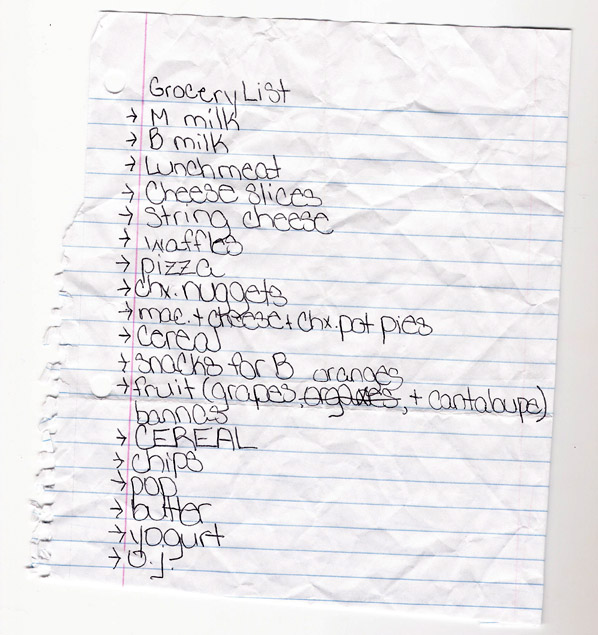 Grocery List
→ M milk
→ B milk
→ Lunchmeat
→ Cheese slices
→ String cheese
→ waffles
→ pizza
→ chx. nuggets
→ mac. + cheese + chx. pot pies
→ cereal
→ snacks for B
oranges
→ fruit (grapes, , + cantaloupe)
bannas
→ CEREAL
→ chips
→ pop
→ butter
→ yogurt
→ O.j.